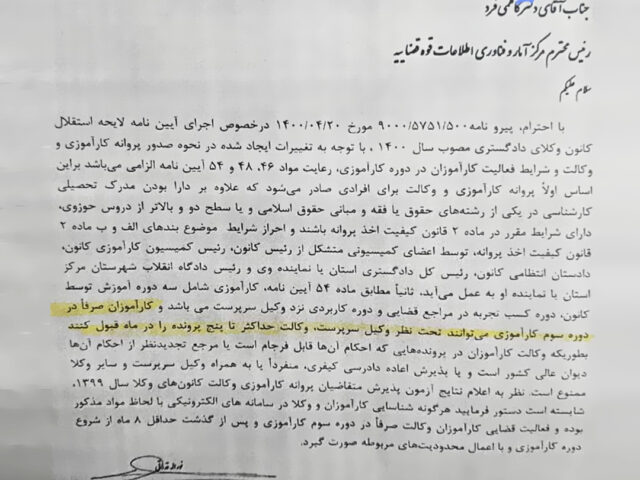 جناب آقای دکتر کاظمی فرد
رئیس محترم مرکز آمار و فناوری اطلاعات قوه قضاییه
سلام علیکم
با احترام، پیرو نامه ۹۰۰۰/۵۷۵۱/۵۰۰ مورخ ۱۴۰۰/۰۴/۲۰ درخصوص اجرای آیین نامه لایحه استقلال
کانون وکلای دادگستری مصوب سال ۱۴۰۰ ، با توجه به تغییرات ایجاد شده در نحوه صدور پروانه کارآموزی و
وکالت و شرایط فعالیت کارآموزان در دوره کارآموزی، رعایت مواد ۴۶، ۴۸ و ۵۴ آیین نامه الزامی می‌باشد براین
اساس اولاً پروانه کارآموزی و وکالت برای افرادی صادر می‌شود که علاوه بر دارا بودن مدرک تحصیلی
کارشناسی در یکی از رشته‌های حقوق یا فقه و مبانی حقوق اسلامی و یا سطح دو و بالاتر از دروس حوزوی،
دارای شرایط مقرر در ماده ۲ قانون کیفیت اخذ پروانه باشند و احراز شرایط موضوع بندهای الف و ب ماده ۲
قانون کیفیت اخذ پروانه، توسط اعضای کمیسیونی متشکل از رئیس کانون، رئیس کمیسیون کارآموزی کانون،
دادستان انتظامی کانون، رئیس کل دادگستری استان یا نماینده وی و رئیس دادگاه انقلاب شهرستان مرکز
استان یا نماینده او به عمل می‌آید. ثانیاً مطابق ماده ۵۴ آیین نامه، کارآموزی شامل سه دوره آموزش توسط
کانون، دوره کسب تجربه در مراجع قضایی و دوره کاربردی نزد وکیل سرپرست می باشد و کارآموزان صرفاً در
دوره سوم کارآموزی می‌توانند تحت نظر وکیل سرپرست، وکالت حداکثر تا پنج پرونده را در ماه قبول کنند
بطوریکه وکالت کارآموزان در پرونده‌هایی که احکام آن‌ها قابل فرجام است یا مرجع تجدیدنظر از احکام آن‌ها
دیوان عالی کشور است و یا پذیرش اعاده دادرسی کیفری، منفرداً یا به همراه وکیل سرپرست و سایر وکلا
ممنوع است. نظر به اعلام نتایج آزمون پذیرش متقاضیان پروانه کارآموزی وکالت کانون‌های وکلا سال ۱۳۹۹،
شایسته است دستور فرمایید هرگونه شناسایی کارآموزان و وکلا در سامانه های الکترونیکی با لحاظ مواد مذکور
بوده و فعالیت قضایی کارآموزان وکالت صرفاً در دوره سوم کارآموزی و پس از گذشت حداقل ۸ ماه از شروع
دوره کارآموزی و با اعمال محدودیت‌های مربوطه صورت گیرد.